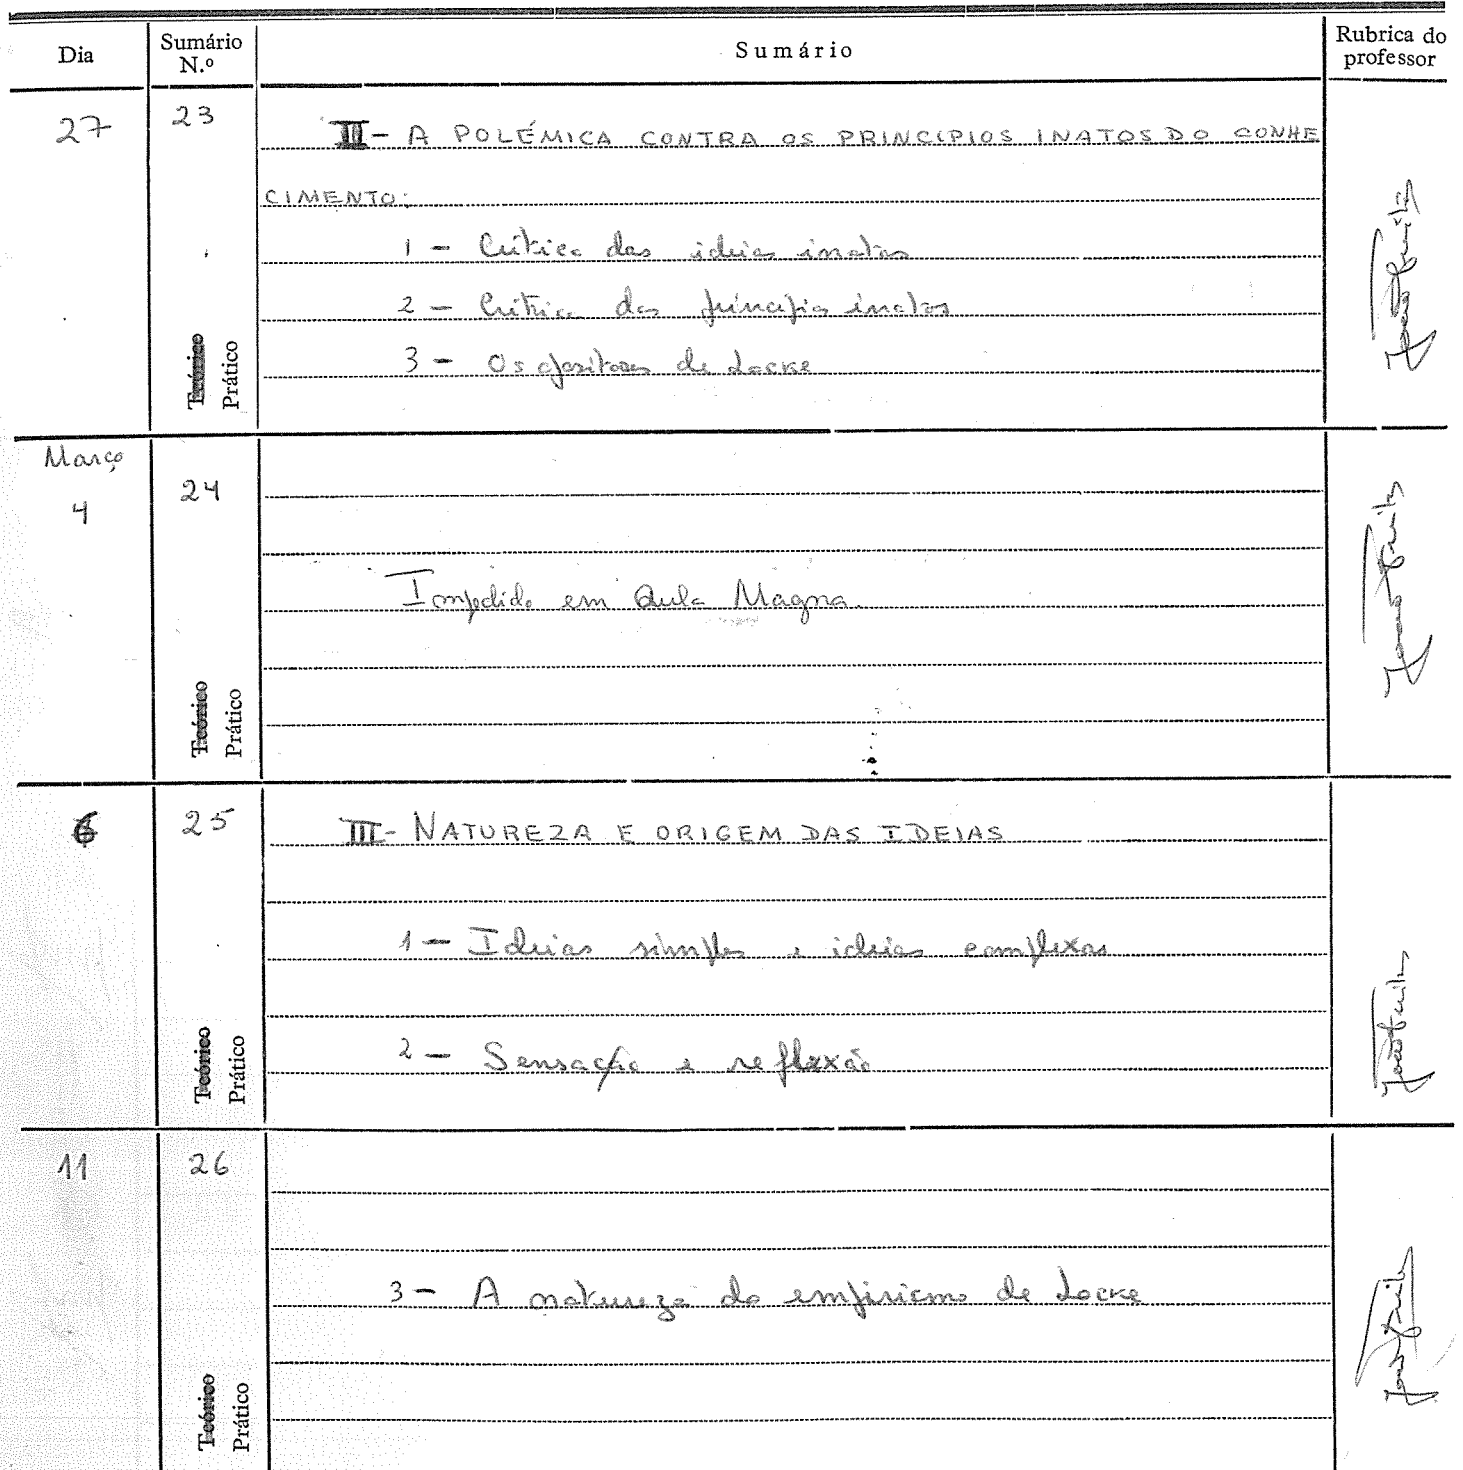 Dia Sumário N.º Sumário Rubrica do professor
27 23 II - A POLÉMICA CONTRA OS PRINCIPIOS INATOS DO CONHE
CIMENTO:
1 - Crítica das ideias inatas
2 - Crítica dos princípios inatos
3 - Os opositores de Locke
Teórico
Prático
Março
4 24
Impedido em Aula Magna.
Teórico
Prático
6 25 III - NATUREZA E ORIGEM DAS IDEIAS
1 - Ideias simples e ideias complexas
2 - Sensação e reflexão
Teórico
Prático
11 26
3 - A natureza do empirismo de Locke
Teórico
Prático